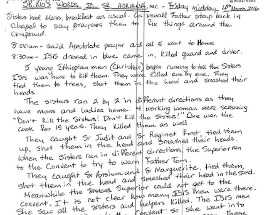 SR RIO'S WORDS TO SR ADRIANA, MC - Friday midday, 18th March, 2016
Sisters had Mass, breakfast as usual. As usual Father stays back in
Chapel to say prayers then to fix things around the
compound.
8:00am - Said Apostolate prayer and went to Home
8:30am - ISIS dressed in blue came in, killed guard and driver.
5 young Ethiopian men (Christian) began running to tell the Sisters
ISIS was here to kill them. They were killed one by one. They
tied them to trees, shot them in the head and smashed their
heads.
The sisters ran 2 by 2 in different directions as they
have men and ladies' home. 4 working women were screaming
"Don't kill the Sisters! Don't kill the Sisters!" One was the
cook for 15 years. They killed them as well.
They caught Sr Judit and Sr Reginet first, tied them
up, shot them in the head and smashed their heads.
When the Sisters ran in different directions, the Superior ran
to the Convent to try to warn Father Tom.
They caught Sr Anselm and Sr Marguerite, tied them,
shot them in the head and smashed their head in the sand.
Meanwhile the Sisters Superior could not get to the
convent. It is not clear how many ISIS men were there.
She saw all the Sisters and helpers killed. The ISIS men
were already getting to the convent so she went into